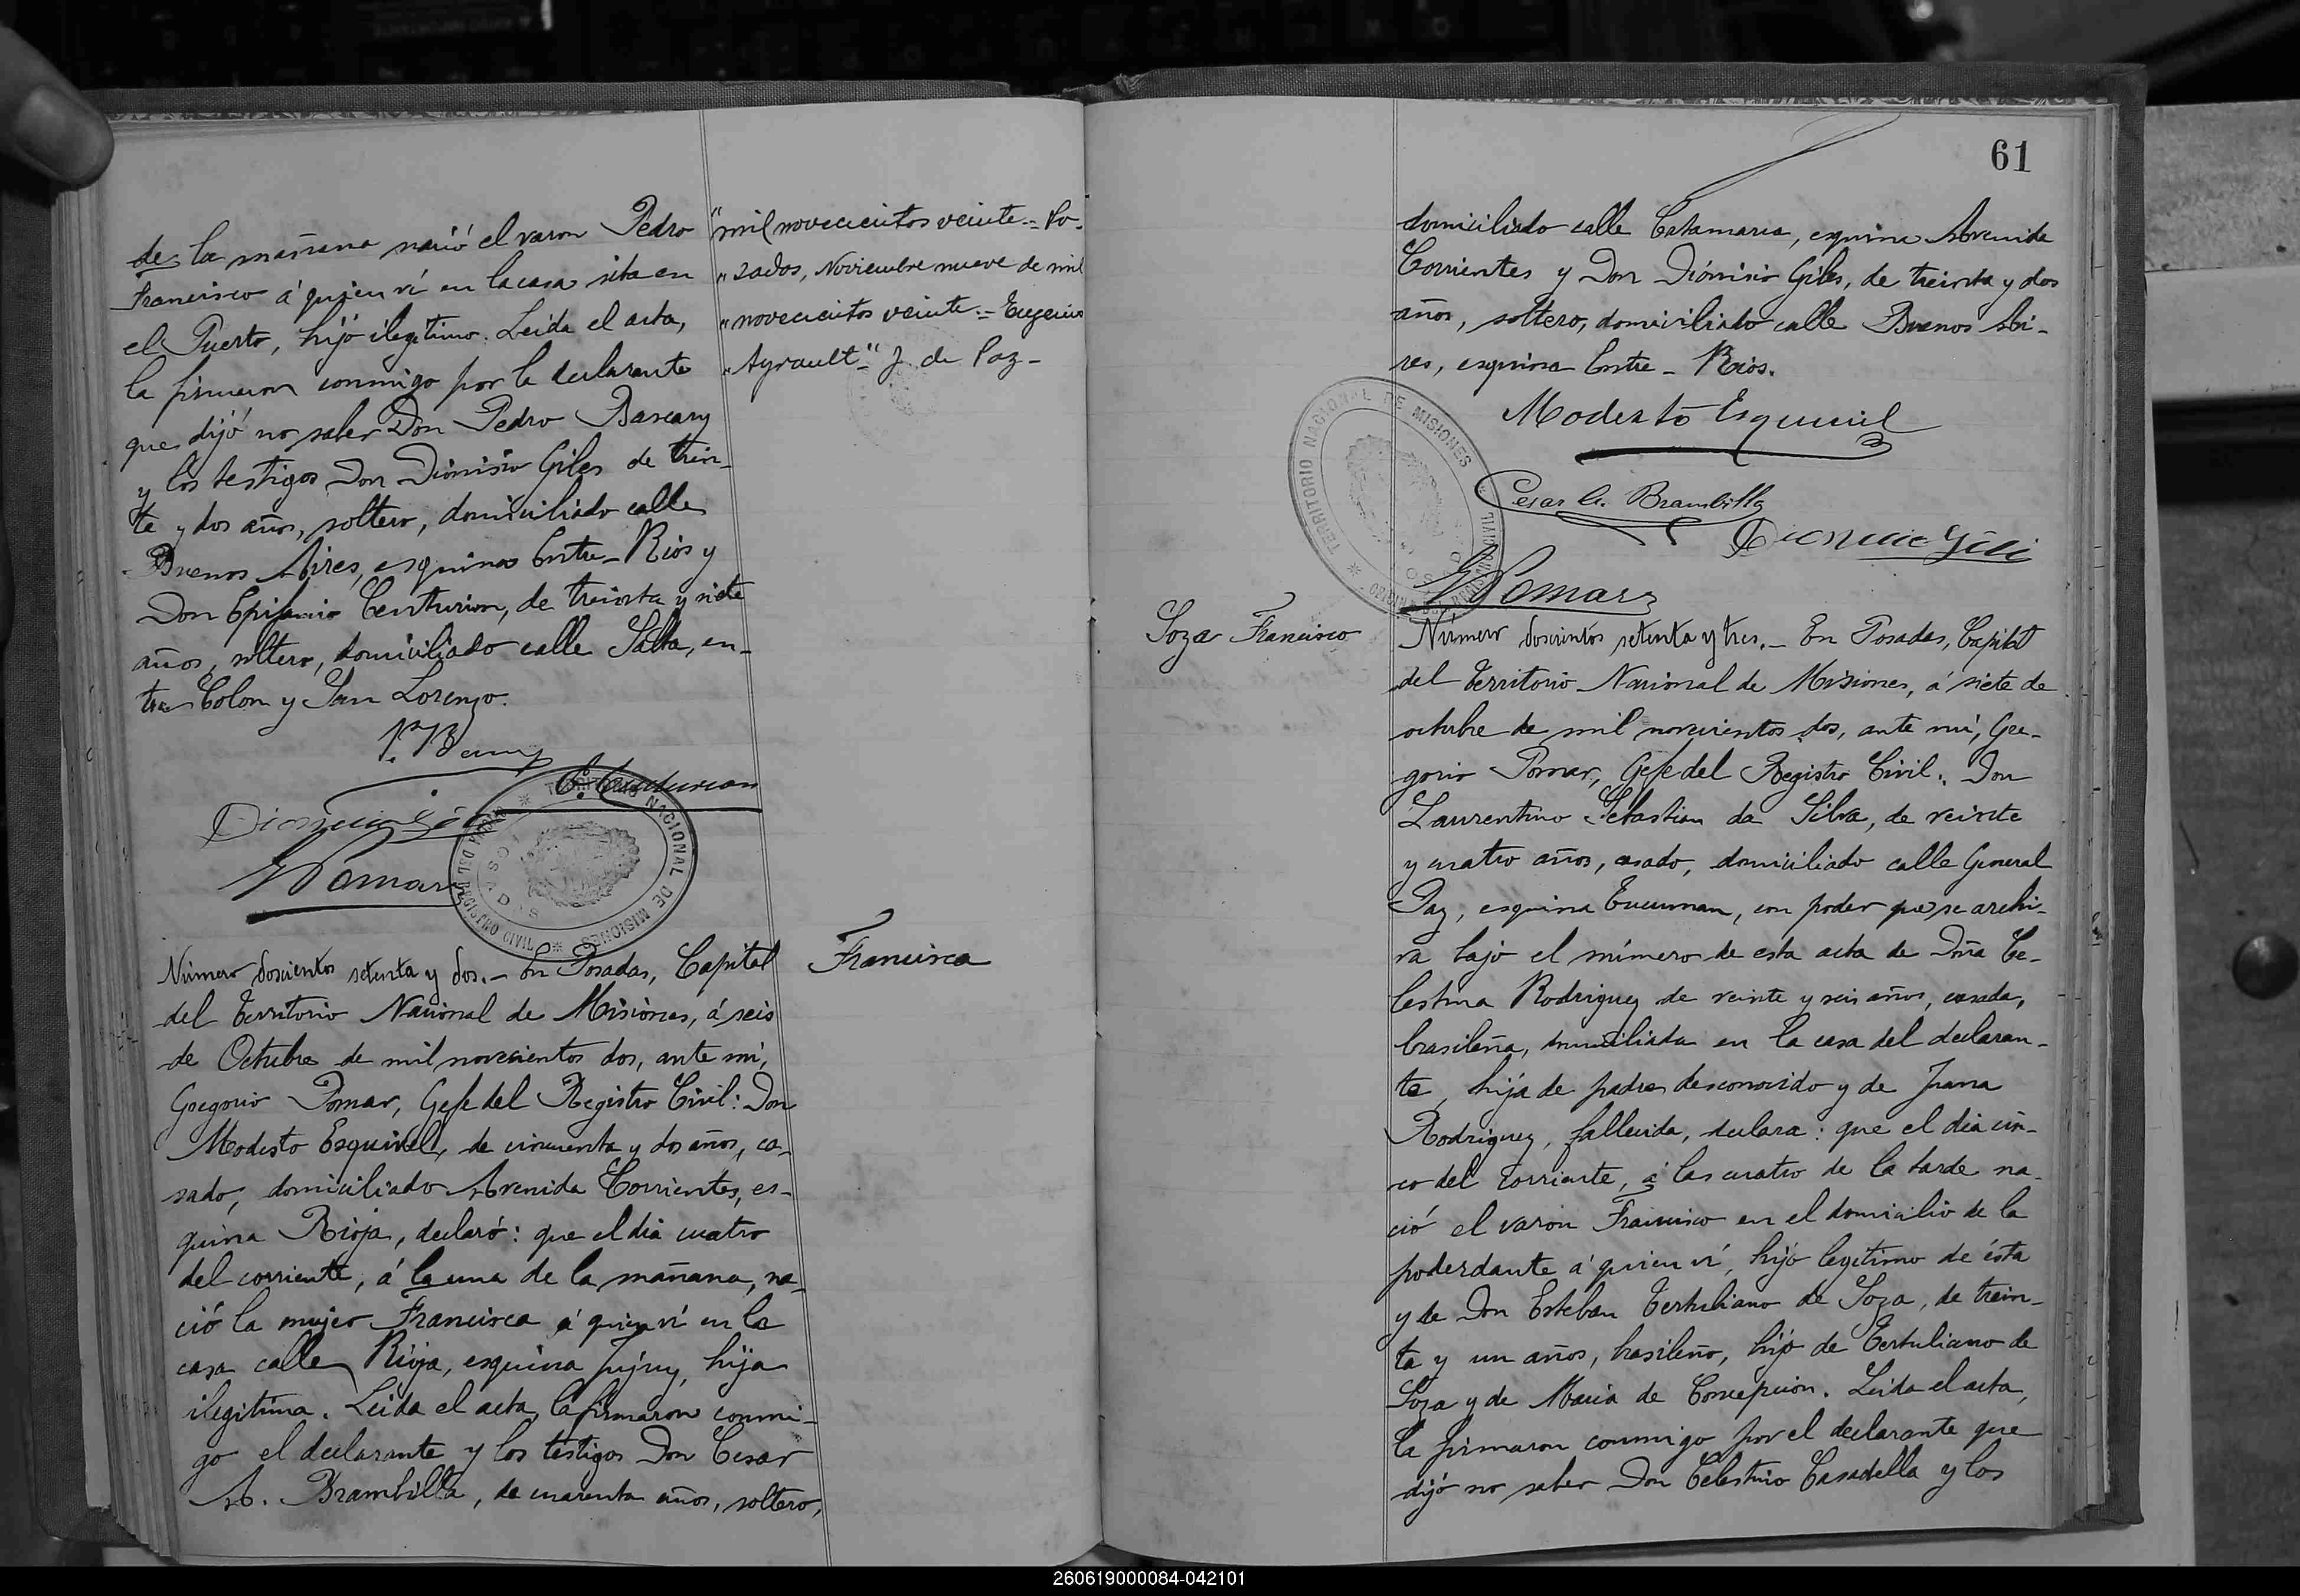 de la mañana nació el varon Pedro
Francisco á quien ví en la casa sita en
el Puerto, hijo ilegitimo. Leida el acta,
la firmaron conmigo por la declarante
que dijó no saber Don Pedro Bascary
y los testigos Don Dionisio Giles de trein-
ta y dos años, soltero, domiciliado calle
Buenos Aires, esquina Entre-Rios y
Don Epifanio Centurion, de treinta y siete
años, soltero, domiciliado calle Salta, en-
tre Colon y San Lorenzo.
E. Centurion
G Pomar
TERRITORIO NACIONAL DE MISIONES
OFICINA DEL REGISTRO CIVIL
POSADAS
"mil novecientos veinte.= Po-
"sadas, Noviembre nueve de mil
"novecientos veinte.= Eugenio
"Ayrault" J. de Paz-
Francisca
Número doscientos setenta y dos.- En Posadas, Capital
del Territorio Nacional de Misiones, á seis
de Octubre de mil novecientos dos, ante mí,
Gregorio Pomar, Gefe del Registro Civil: Don
Modesto Esquivel, de cincuenta y dos años, ca-
sado, domiciliado Avenida Corrientes, es-
quina Rioja, declaró: que el dia cuatro
del corriente, á la una de la mañana, na-
ció la mujer Francisca á quien ví en la
casa calle Rioja, esquina Jujuy, hija
ilegitima. Leida el acta, la firmaron conmi-
go el declarante y los testigos Don Cesar
A. Brambilla, de cuarenta años, soltero,
61
domiciliado calle Catamarca, esquina Avenida
Corrientes y Don Dionisio Giles, de treinta y dos
años, soltero, domiciliado calle Buenos Ai-
res, esquina Entre-Rios.
Modesto Esquivel
Cesar A. Brambilla
Dionicio Gili
G Pomar
TERRITORIO NACIONAL DE MISIONES
Soza Francisco
Número doscientos setenta y tres.- En Posadas, Capital
del Territorio Nacional de Misiones, á siete de
octubre de mil novecientos dos, ante mí, Gre-
gorio Pomar, Gefe del Registro Civil: Don
Laurentino Sebastian da Silva, de veinte
y cuatro años, casado, domiciliado calle General
Paz, esquina Tucuman, con poder que se archi-
va bajo el número de esta acta de Doña Ce-
lestina Rodriguez de veinte y seis años, casada,
brasileña, domiciliada en la casa del declaran-
te, hija de padre desconocido y de Juana
Rodriguez, fallecida, declara: que el dia cin-
co del corriente, á las cuatro de la tarde na-
ció el varon Francisco en el domicilio de la
poderdante á quien ví, hijo legitimo de ésta
y de Don Esteban Tertuliano de Soza, de trein-
ta y un años, brasileño, hijo de Tertuliano de
Soza y de Maria de Concepcion. Leida el acta,
la firmaron conmigo por el declarante que
dijó no saber Don Celestino Casadella y los
260619000084-042101